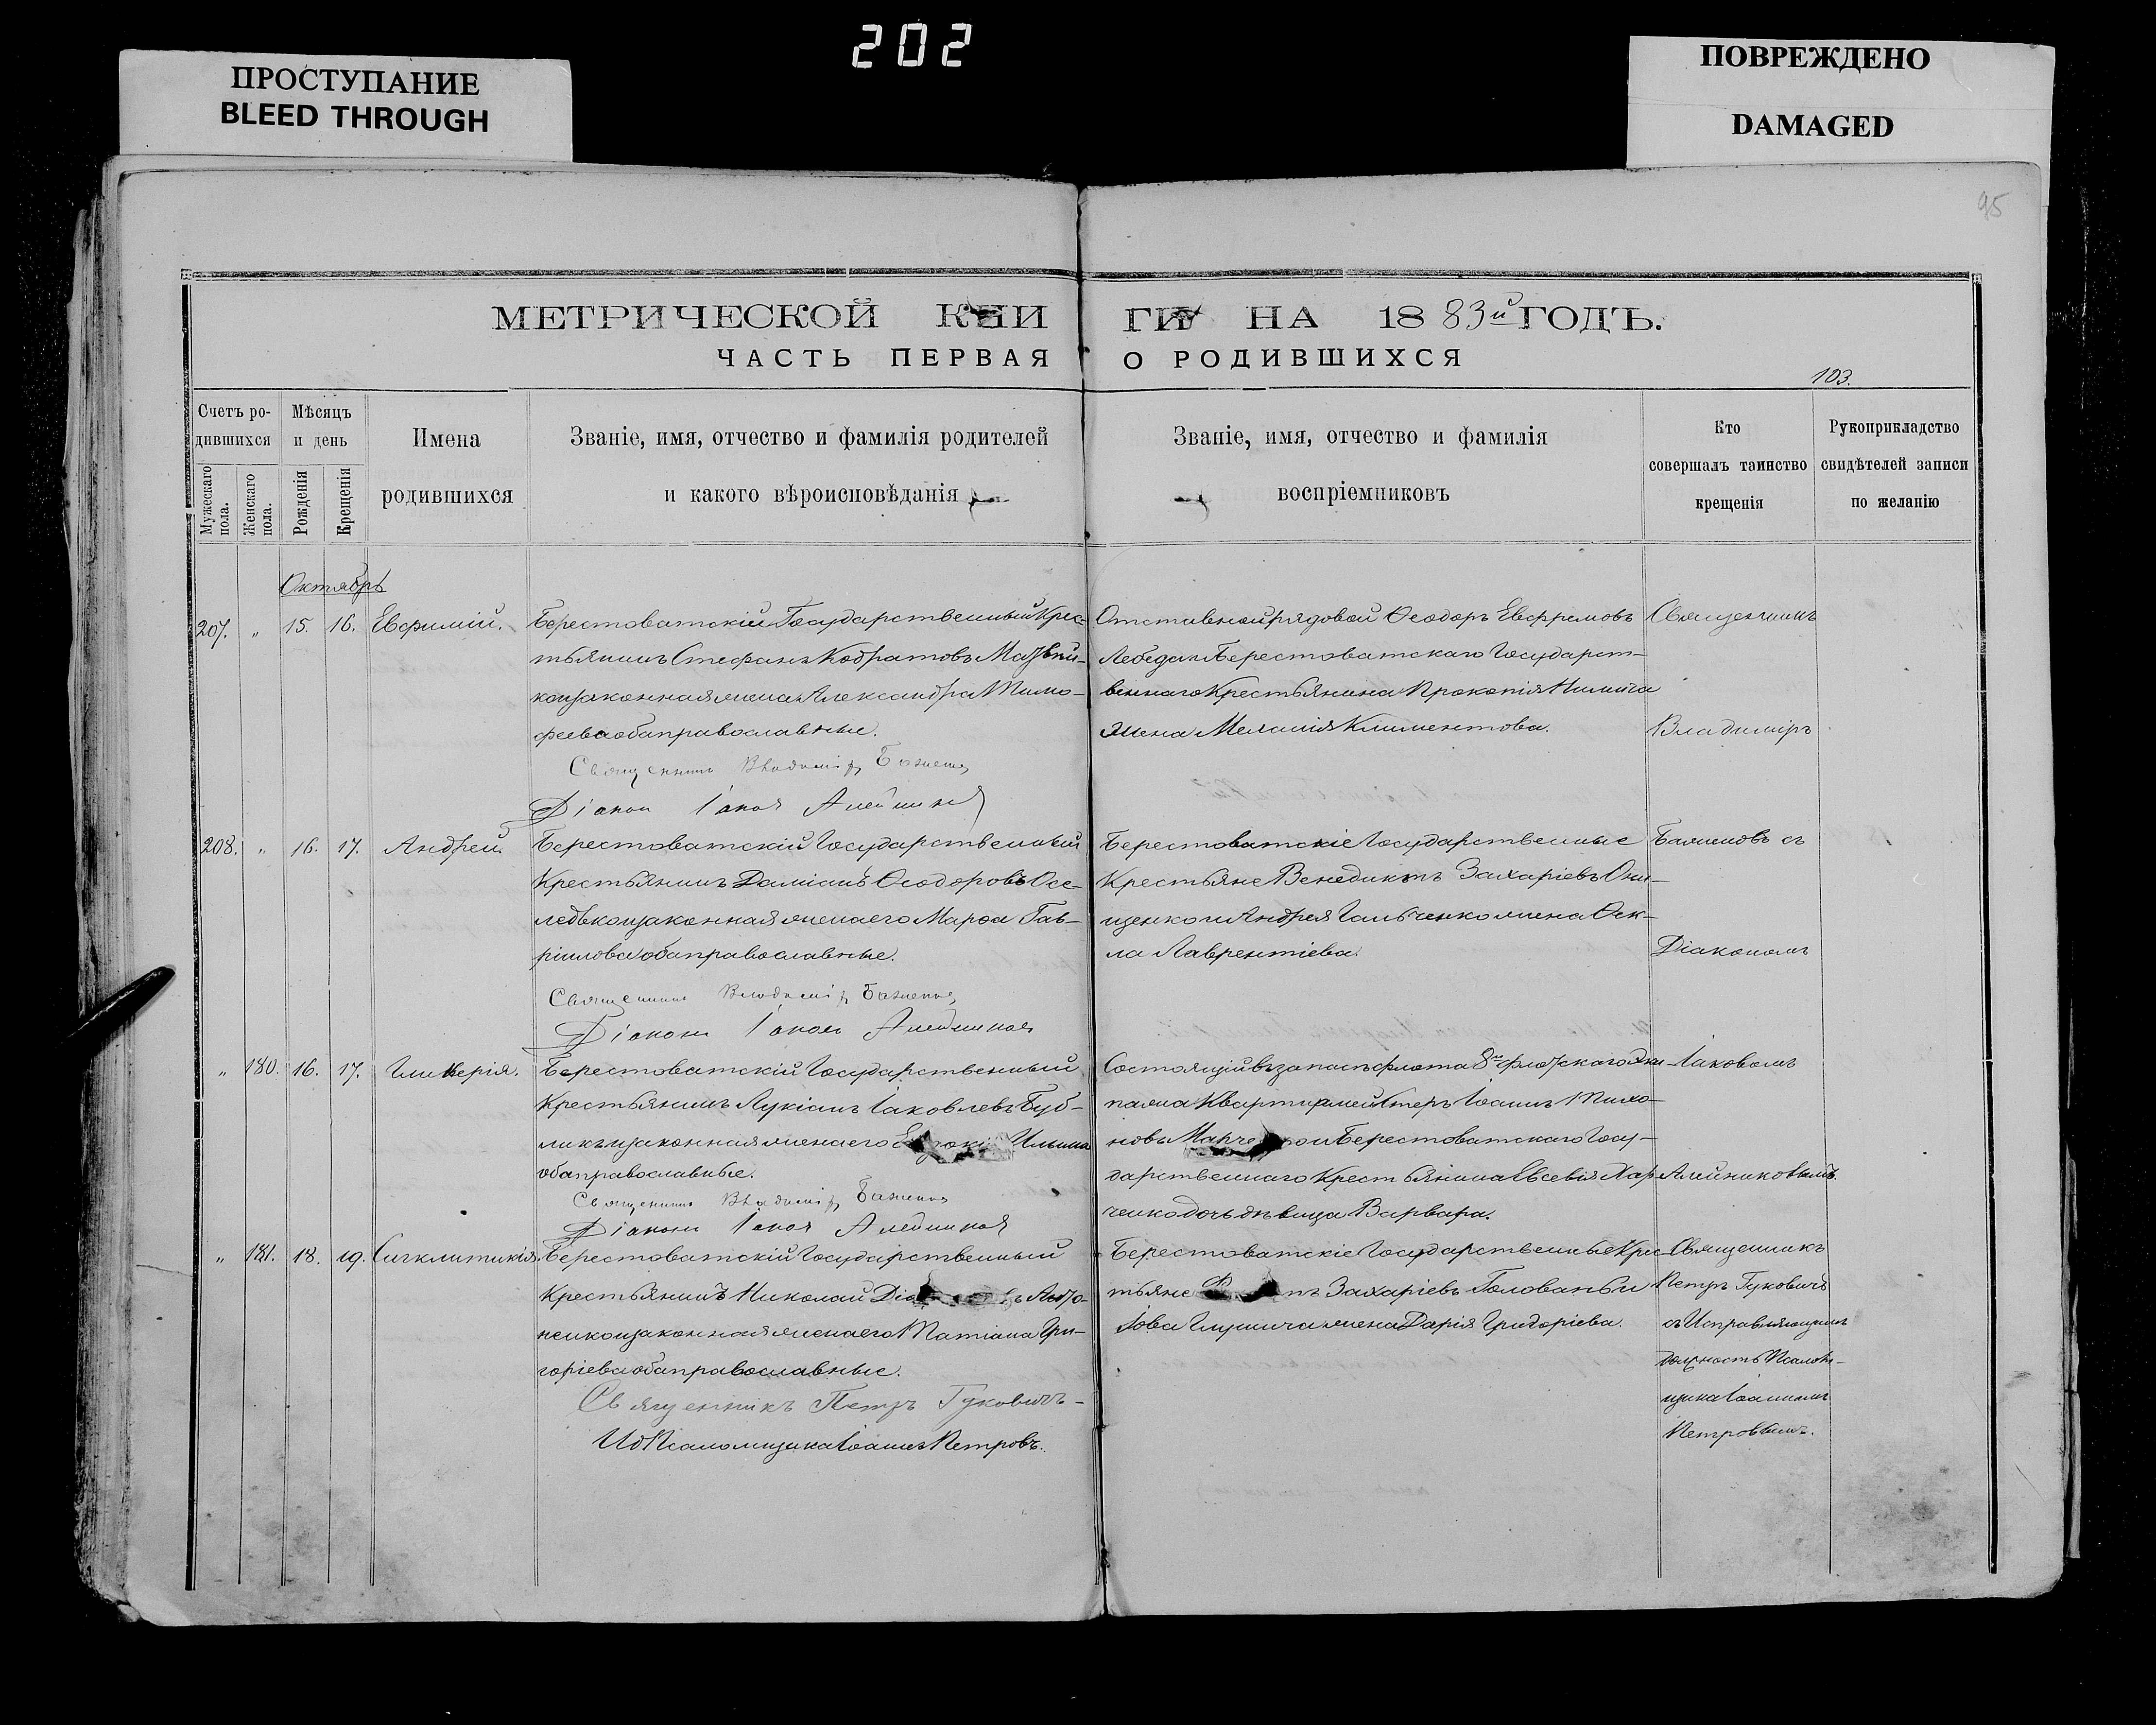 202
ПРОСТУПАНИЕ
BLEED THROUGH
ПОВРЕЖДЕНО
DAMAGED
95
МЕТРИЧЕСКОЙ КНИ ГИ НА 1883й ГОДЪ.
ЧАСТЬ ПЕРВАЯ О РОДИВШИХСЯ
103.
Счетъ ро-
дившихся
Мужескаго
пола.
Женскаго
пола.
Мѣсяцъ
и день
Рожденія
Крещенія
Имена
родившихся
Званіе, имя, отчество и фамилія родителей
и какого вѣроисповѣданія
Званіе, имя, отчество и фамилія
воспріемниковъ
Кто
совершалъ таинство
крещенія
Рукоприкладство
свидѣтелей записи
по желанію
Октябрь
207. " 15. 16. Евфимій.
Берестоватскій Государственный Крес-
тьянинъ Стефанъ Кодратовъ
законная жена Александра Тимо-
феева оба православные.
Священникъ Владиміръ Баженовъ
Діаконъ Іаковъ Алейниковъ
Отставной рядовой Ѳеодоръ Евфремовъ
Лебедь и Берестоватскаго Государст-
веннаго Крестьянина Прокопія
жена Меланія Климентова.
Священникъ
Владиміръ
208. " 16. 17. Андрей.
Берестоватскій Государственный
Крестьянинъ Даміанъ Ѳеодоровъ Осе-
ледько и законная жена его Марѳа Гав-
ріилова оба православные.
Священникъ Владиміръ Баженовъ
Діаконъ Іаковъ Алейниковъ
Берестоватскіе Государственные
Крестьяне Венедиктъ Захаріевъ Они-
щенко и Андрея Гальченко жена Ѳек-
ла Лаврентіева.
Баженовъ съ
Діакономъ
" 180. 16. 17. Гликерія.
Берестоватскій Государственный
Крестьянинъ Лукіанъ Іаковлевъ Буб-
ликъ и законная жена его Ильина
оба православные.
Священникъ Владиміръ Баженовъ
Діаконъ Іаковъ Алейниковъ
Состоящій въ запасѣ флота 8го флотскаго Эки-
пажа Квартирмейстеръ Іоаннъ Тихо-
новъ и Берестоватскаго Госу-
дарственнаго Крестьянина Евсевія Хар-
ченко дочь дѣвица Варвара.
Іаковомъ
Алейниковымъ.
" 181. 18. 19. Сигклитикія.
Берестоватскій Государственный
Крестьянинъ Николай
законная жена его Татіана Гри-
горіева оба православные.
Священникъ Петръ Гуковичъ
ИдПсаломщика Іоаннъ Петровъ.
Берестоватскіе Государственные Крес-
тьяне Захаріевъ Голованъ и
Іова жена Дарія Григоріева.
Священникъ
Петръ Гуковичъ
съ Исправляющимъ
должность Псалом-
щика Іоанномъ
Петровымъ.